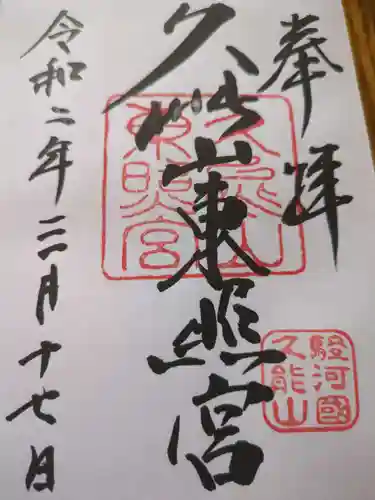 奉拝
久能山東照宮
令和二年三月十七日
久能山東照宮
駿河國
久能山